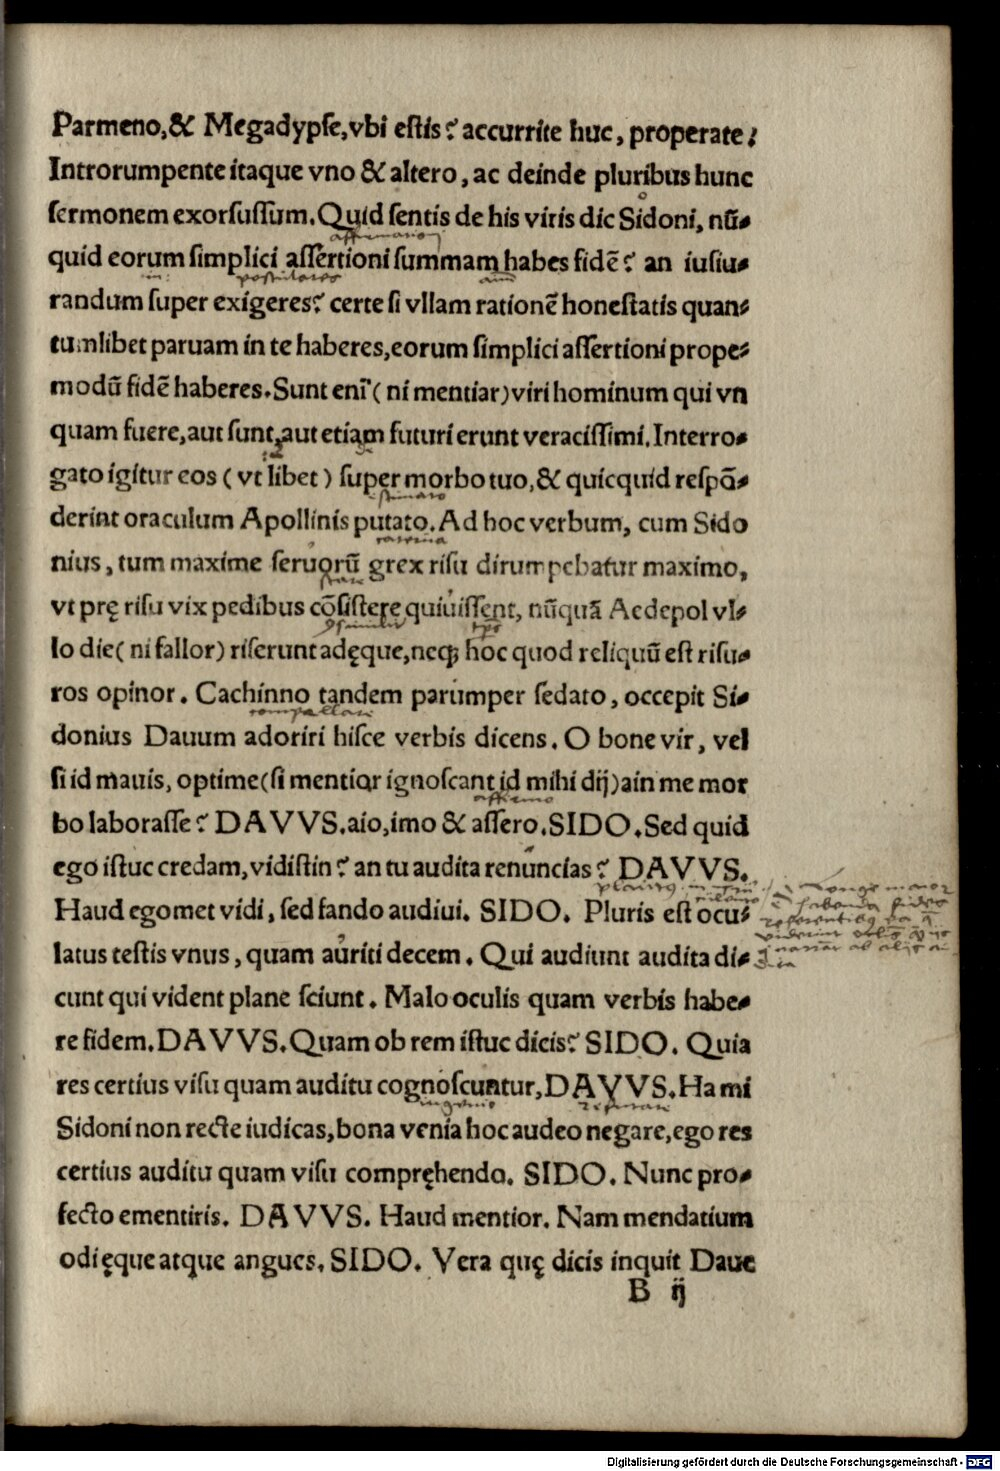 Parmeno,& Megadypſe,vbi eſtis? accurrite huc, properate:
Introrumpente itaque vno & altero, ac deinde pluribus hunc
ſermonem exorſuſſum. Quid ſentis de his viris dic Sidoni, nũ-
quid eorum ſimplici aſſertioni ſummam habes fidẽ? an iuſiu-
randum ſuper exigeres? certe ſi vllam rationẽ honeſtatis quan-
tumlibet paruam in te haberes,eorum ſimplici aſſertioni prope-
modũ fidẽ haberes.Sunt eni᷉ ( ni mentiar)viri hominum qui vn
quam fuere,aut ſunt,aut etiam futuri erunt veraciſſimi.Interro-
gato igitur eos ( vt libet ) ſuper morbo tuo,& quicquid reſpõ-
derint oraculum Apollinis putato. Ad hoc verbum, cum Sido
nius, tum maxime ſeruorũ grex riſu dirumpebatur maximo,
vt prę riſu vix pedibus cõſiſtere quiuiſſent, nũquã Aedepol vl-
lo die( ni fallor) riſerunt adęque,neqꝫ hoc quod reliquũ eſt riſu-
ros opinor. Cachinno tandem parumper ſedato, occepit Si-
donius Dauum adoriri hiſce verbis dicens. O bone vir, vel
ſi id mauis, optime(ſi mentior ignoſcant id mihi dij)ain me mor
bo laboraſſe? DAVVS.aio,imo & aſſero.SIDO.Sed quid
ego iſtuc credam,vidiſtin? an tu audita renuncias? DAVVS.
Haud egomet vidi, ſed fando audiui. SIDO. Pluris eſt ocu-
latus teſtis vnus, quam auriti decem. Qui audiunt audita di-
cunt qui vident plane ſciunt. Malo oculis quam verbis habe-
re fidem.DAVVS.Quam ob rem iſtuc dicis? SIDO. Quia
res certius viſu quam auditu cognoſcuntur,DAVVS.Ha mi
Sidoni non recte iudicas,bona venia hoc audeo negare,ego res
certius auditu quam viſu compręhendo. SIDO. Nunc pro-
fecto ementiris. DAVVS. Haud mentior. Nam mendatium
odi ęque atque angues. SIDO. Vera quę dicis inquit Daue
B ij
Digitalisierung gefördert durch die Deutsche Forschungsgemeinschaft - DFG